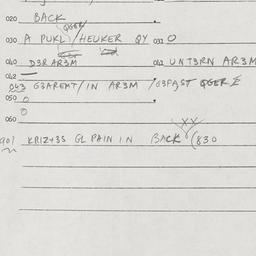 020 BACK
030 A PUKL/HEUKER QY 031 O
040 D3R AR3M 041 UNT3RN AR3M
042
043 G3AREMT/IN AR3M /G3FAST QGER
050 O
060 O
901 KRIZ+3S GL PAIN IN BACK (830
XX